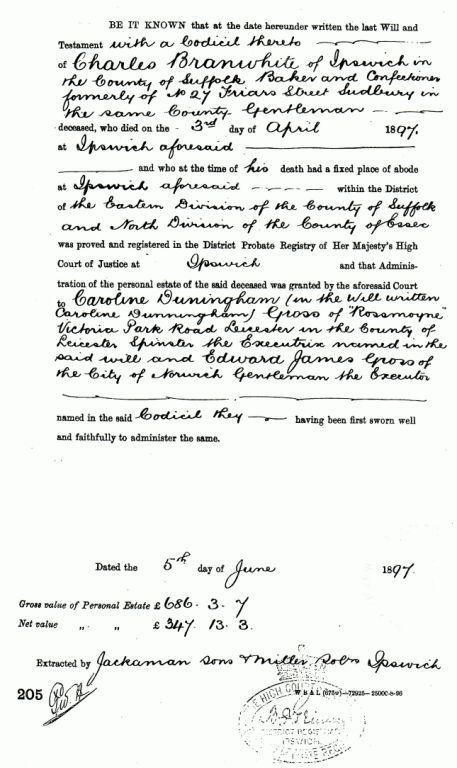 BE IT KNOWN that at the date hereunder written the last Will and
Testament with a Codicil thereto
of Charles Branwhite of Ipswich in
the County of Suffolk Baker and Confectioner
formerly of No 27 Friars Street Sudbury in
the same County Gentleman
deceased, who died on the 3rd day of April 1897.
at Ipswich aforesaid
and who at the time of his death had a fixed place of abode
at Ipswich aforesaid within the District
of the Eastern Division of the County of Suffolk
and North Division of the County of Essex
was proved and registered in the District Probate Registry of Her Majesty's High
Court of Justice at Ipswich and that Adminis-
tration of the personal estate of the said deceased was granted by the aforesaid Court
to Caroline Duningham (in the Will written
Caroline Dunningham) Gross of "Rossmoyne"
Victoria Park Road Leicester in the County of
Leicester Spinster the Executrix named in the
said will and Edward James Gross of
the City of Norwich Gentleman the Executor
named in the said Codicil they having been first sworn well
and faithfully to administer the same.
Dated the 5th day of June 1897.
Gross value of Personal Estate £ 686. 3. 7
Net value „ „ £ 347. 13. 3.
Extracted by Jackaman Sons & Miller Solrs Ipswich
205
W B & L (675w)—72925—25000-8-96
HIGH COU
DISTRICT REGISTRAR
IPSWICH